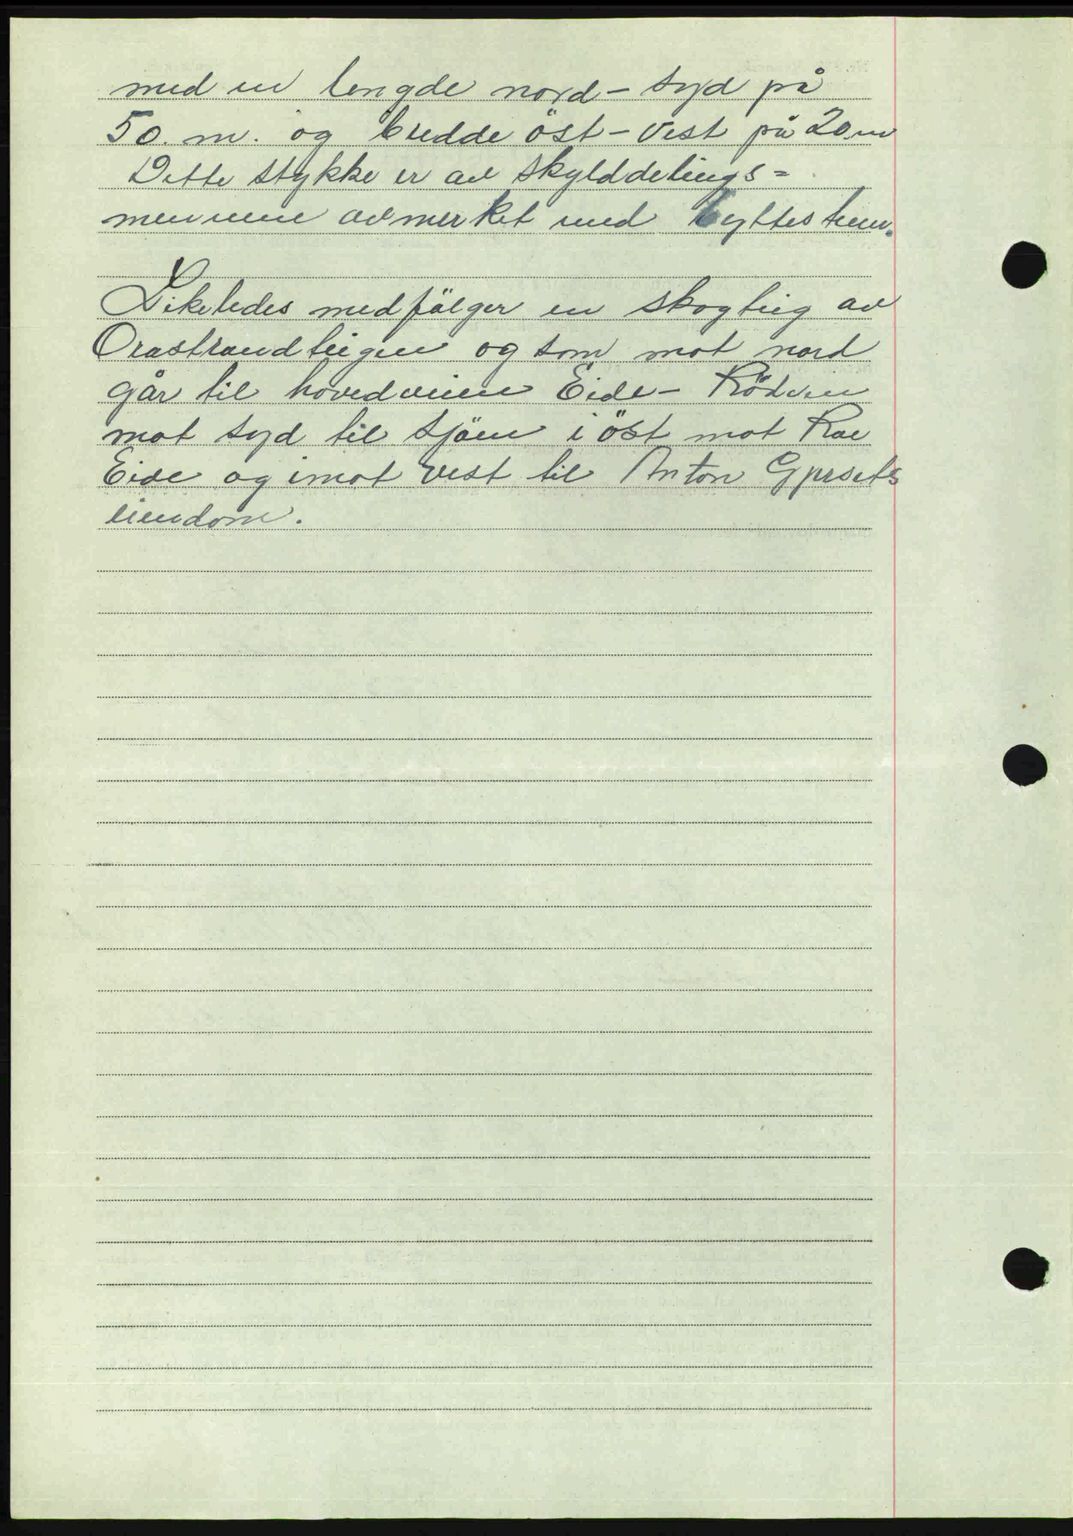 med en lengde nord - syd på
50. m. og bredde öst - vest på 20 m
Dette stykke er av skylddelings=
mennene avmerket med byttesten.
Likeledes medfölger en skogteig av
Orastrandteigen og som mot nord
går til hovedveien Eide - Rödven
mot syd til sjöen i öst mot Roe
Eide og imot vest til Anton Gjersets
eiendom.